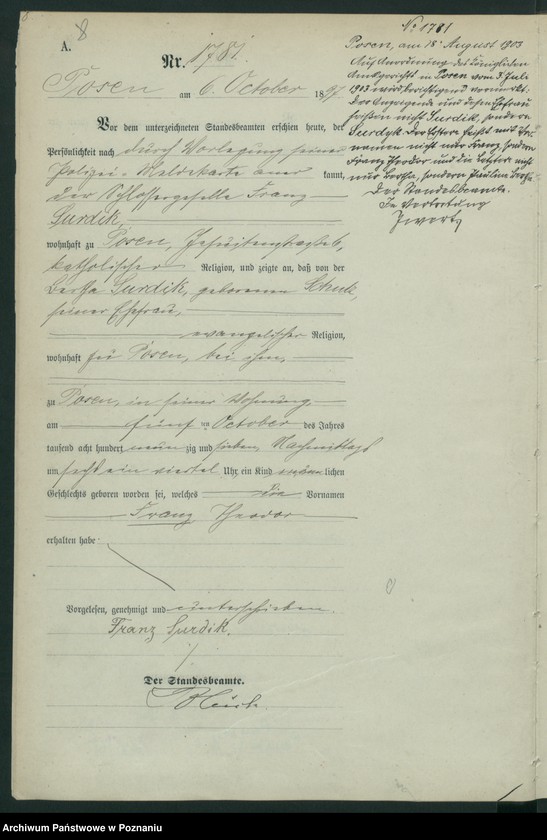 8
A.
Nr. 1781.
Posen am 6. October 1897
Vor dem unterzeichneten Standesbeamten erschien heute, der
Persönlichkeit nach durch Vorlegung seiner
Polizei-Meldekarte aner kannt,
der Schlossergeselle Franz
Surdik,
wohnhaft zu Posen, Jesuitenstraße 6,
katholischer Religion, und zeigte an, daß von der
Bertha Surdik, geborenen Schulz,
seiner Ehefrau,
evangelischer Religion,
wohnhaft zu Posen, bei ihm,
zu Posen, in seiner Wohnung
am fünften October des Jahres
tausend acht hundert neunzig und sieben, Nachmittags
um sechs ein viertel Uhr, ein Kind männlichen
Geschlechts geboren worden sei, welches die Vornamen
Franz Theodor
erhalten habe.
Vorgelesen, genehmigt und unterschrieben.
Franz Surdik.
Der Standesbeamte.
No 1781
Posen, am 18. August 1903
Auf Anordnung des Königlichen
Amtsgerichts in Posen vom 3. Juli
1903 wird berichtigend vermerkt:
Der Anzeigende und dessen Ehefrau
heißen nicht Surdik, sondern
Surdyk. Der Erstere heißt mit Vor
namen nicht nur Franz, sondern
Franz Theodor und die Letztere nicht
nur Bertha, sondern Pauline Bertha.
Der Standesbeamte.
In Vertretung
Archiwum Państwowe w Poznaniu